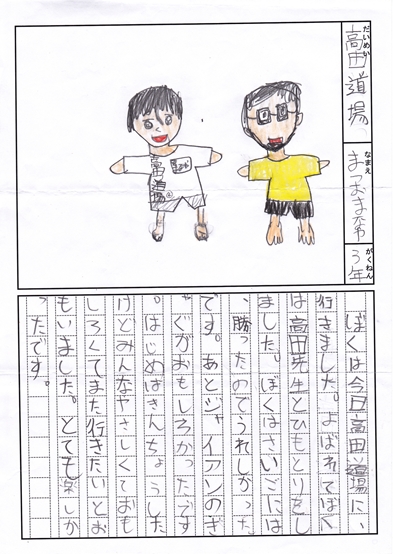 だいめい
高田道場
なまえ
まつおま
がくねん
3年
高田道場
ぼくは今日高田道場に、
行きました。よばれてぼく
は高田先生とひもとりをし
ました。ぼくはさいごには
、勝ったのでうれしかった
です。あとジャイアンのぎ
ゃぐがおもしろかったです
。はじめはきんちょうした
けどみんなやさしくておも
しろくてまた行きたいとお
もいました。とても楽しか
ったです。